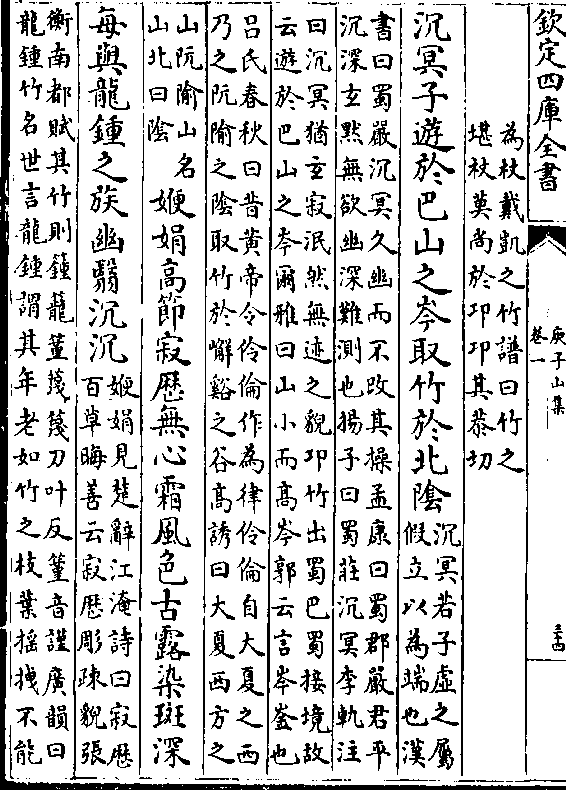 欽定四庫全書
庚子山集
卷一
三十四
為杖戴凱之竹譜曰竹之
堪杖莫尚於卭卭其恭切
沉冥子遊於巴山之岑取竹於北隂
沉冥若子虛之屬
假立以為端也漢
書曰蜀嚴沉冥久幽而不改其操孟康曰蜀郡嚴君平
沉深玄黙無欲幽深難測也揚子曰蜀莊沉冥李軌注
曰沉冥猶玄寂泯然無迹之貌卭竹出蜀巴蜀接境故
云遊於巴山之岑爾雅曰山小而髙岑郭云言岑崟也
吕氏春秋曰昔黄帝令伶倫作為律伶倫自大夏之西
乃之阮隃之隂取竹於嶰谿之谷髙誘曰大夏西方之
山阮隃山名
山北曰隂
㛹娟高節寂歷無心霜風色古露染斑深
每與龍鍾之族幽翳沉沉
㛹娟見楚辭江淹詩曰寂歴
百草晦善云寂歴彫疎貌張
衡南都賦其竹則籦籠䈽篾篾刀叶反䈽音謹廣韻曰
龍鍾竹名世言龍鍾謂其年老如竹之枝葉揺拽不能